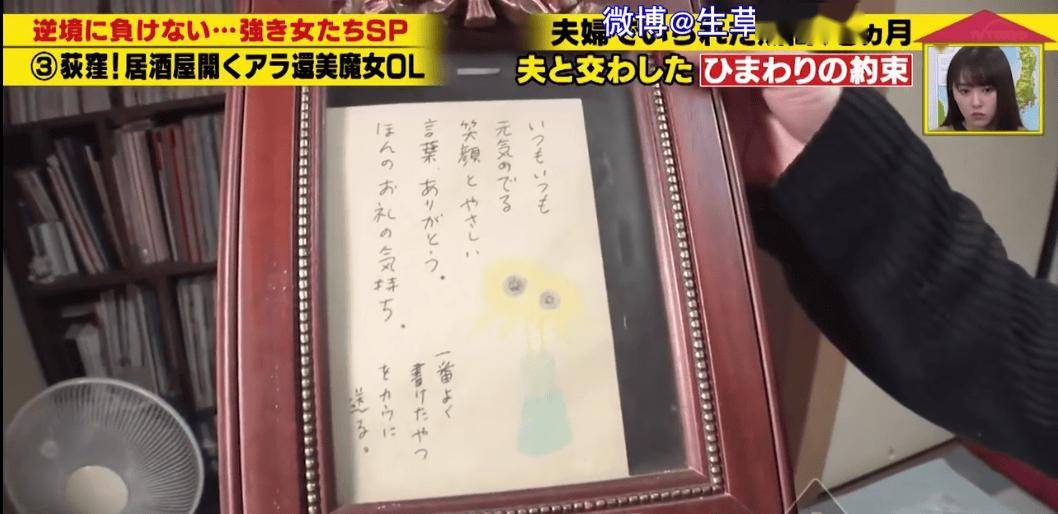 逆境に負けない…強き女たちSP
③荻窪!居酒屋開くアラ還美魔女OL
微博@生草
夫婦でいられた
ヵ月
夫と交わした ひまわりの約束
いつもいつも
元気のでる
笑顔とやさしい
言葉、ありがとう。
ほんのお礼の気持ち。
一番よく
書けたやつ
をカウに
送る。